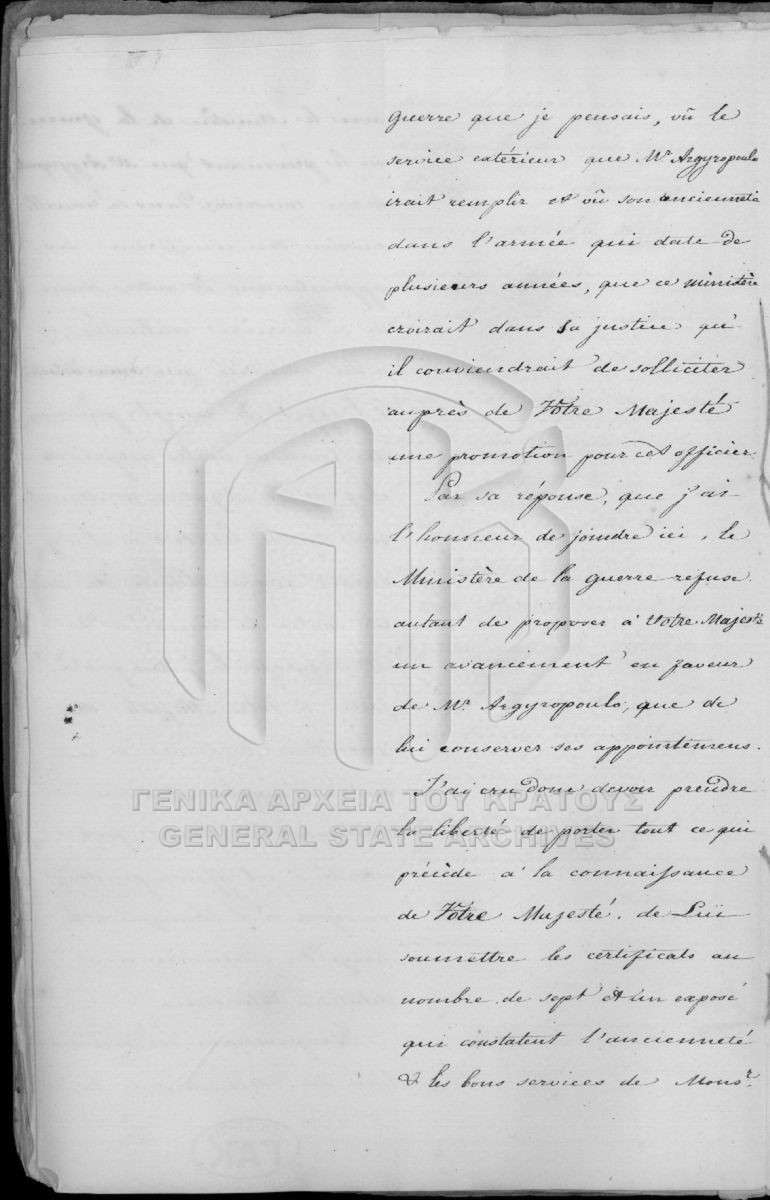 guerre que je pensais, vû le
service extérieur que Mr. Argyropoulo
irait remplir et vû son ancienneté
dans l'armée qui date de
plusieurs années, que ce ministère
croirait dans sa justice qu'
il conviendrait de solliciter
auprès de Votre Majesté
une promotion pour cet officier.
Par sa réponse, que j'ai
l'honneur de joindre ici, le
Ministère de la guerre refuse
autant de proposer à Votre Majesté
un avancement en faveur
de Mr. Argyropoulo, que de
lui conserver ses appointemens.
J'ai cru donc devoir prendre
ΓΕΝΙΚΑ ΑΡΧΕΙΑ ΤΟΥ ΚΡΑΤΟΥΣ
la liberté de porter tout ce qui
GENERAL STATE ARCHIVES
précède à la connaissance
de Votre Majesté, de Lui
soumettre les certificats au
nombre de sept et un exposé
qui constatent l'ancienneté
& les bons services de Monsr.